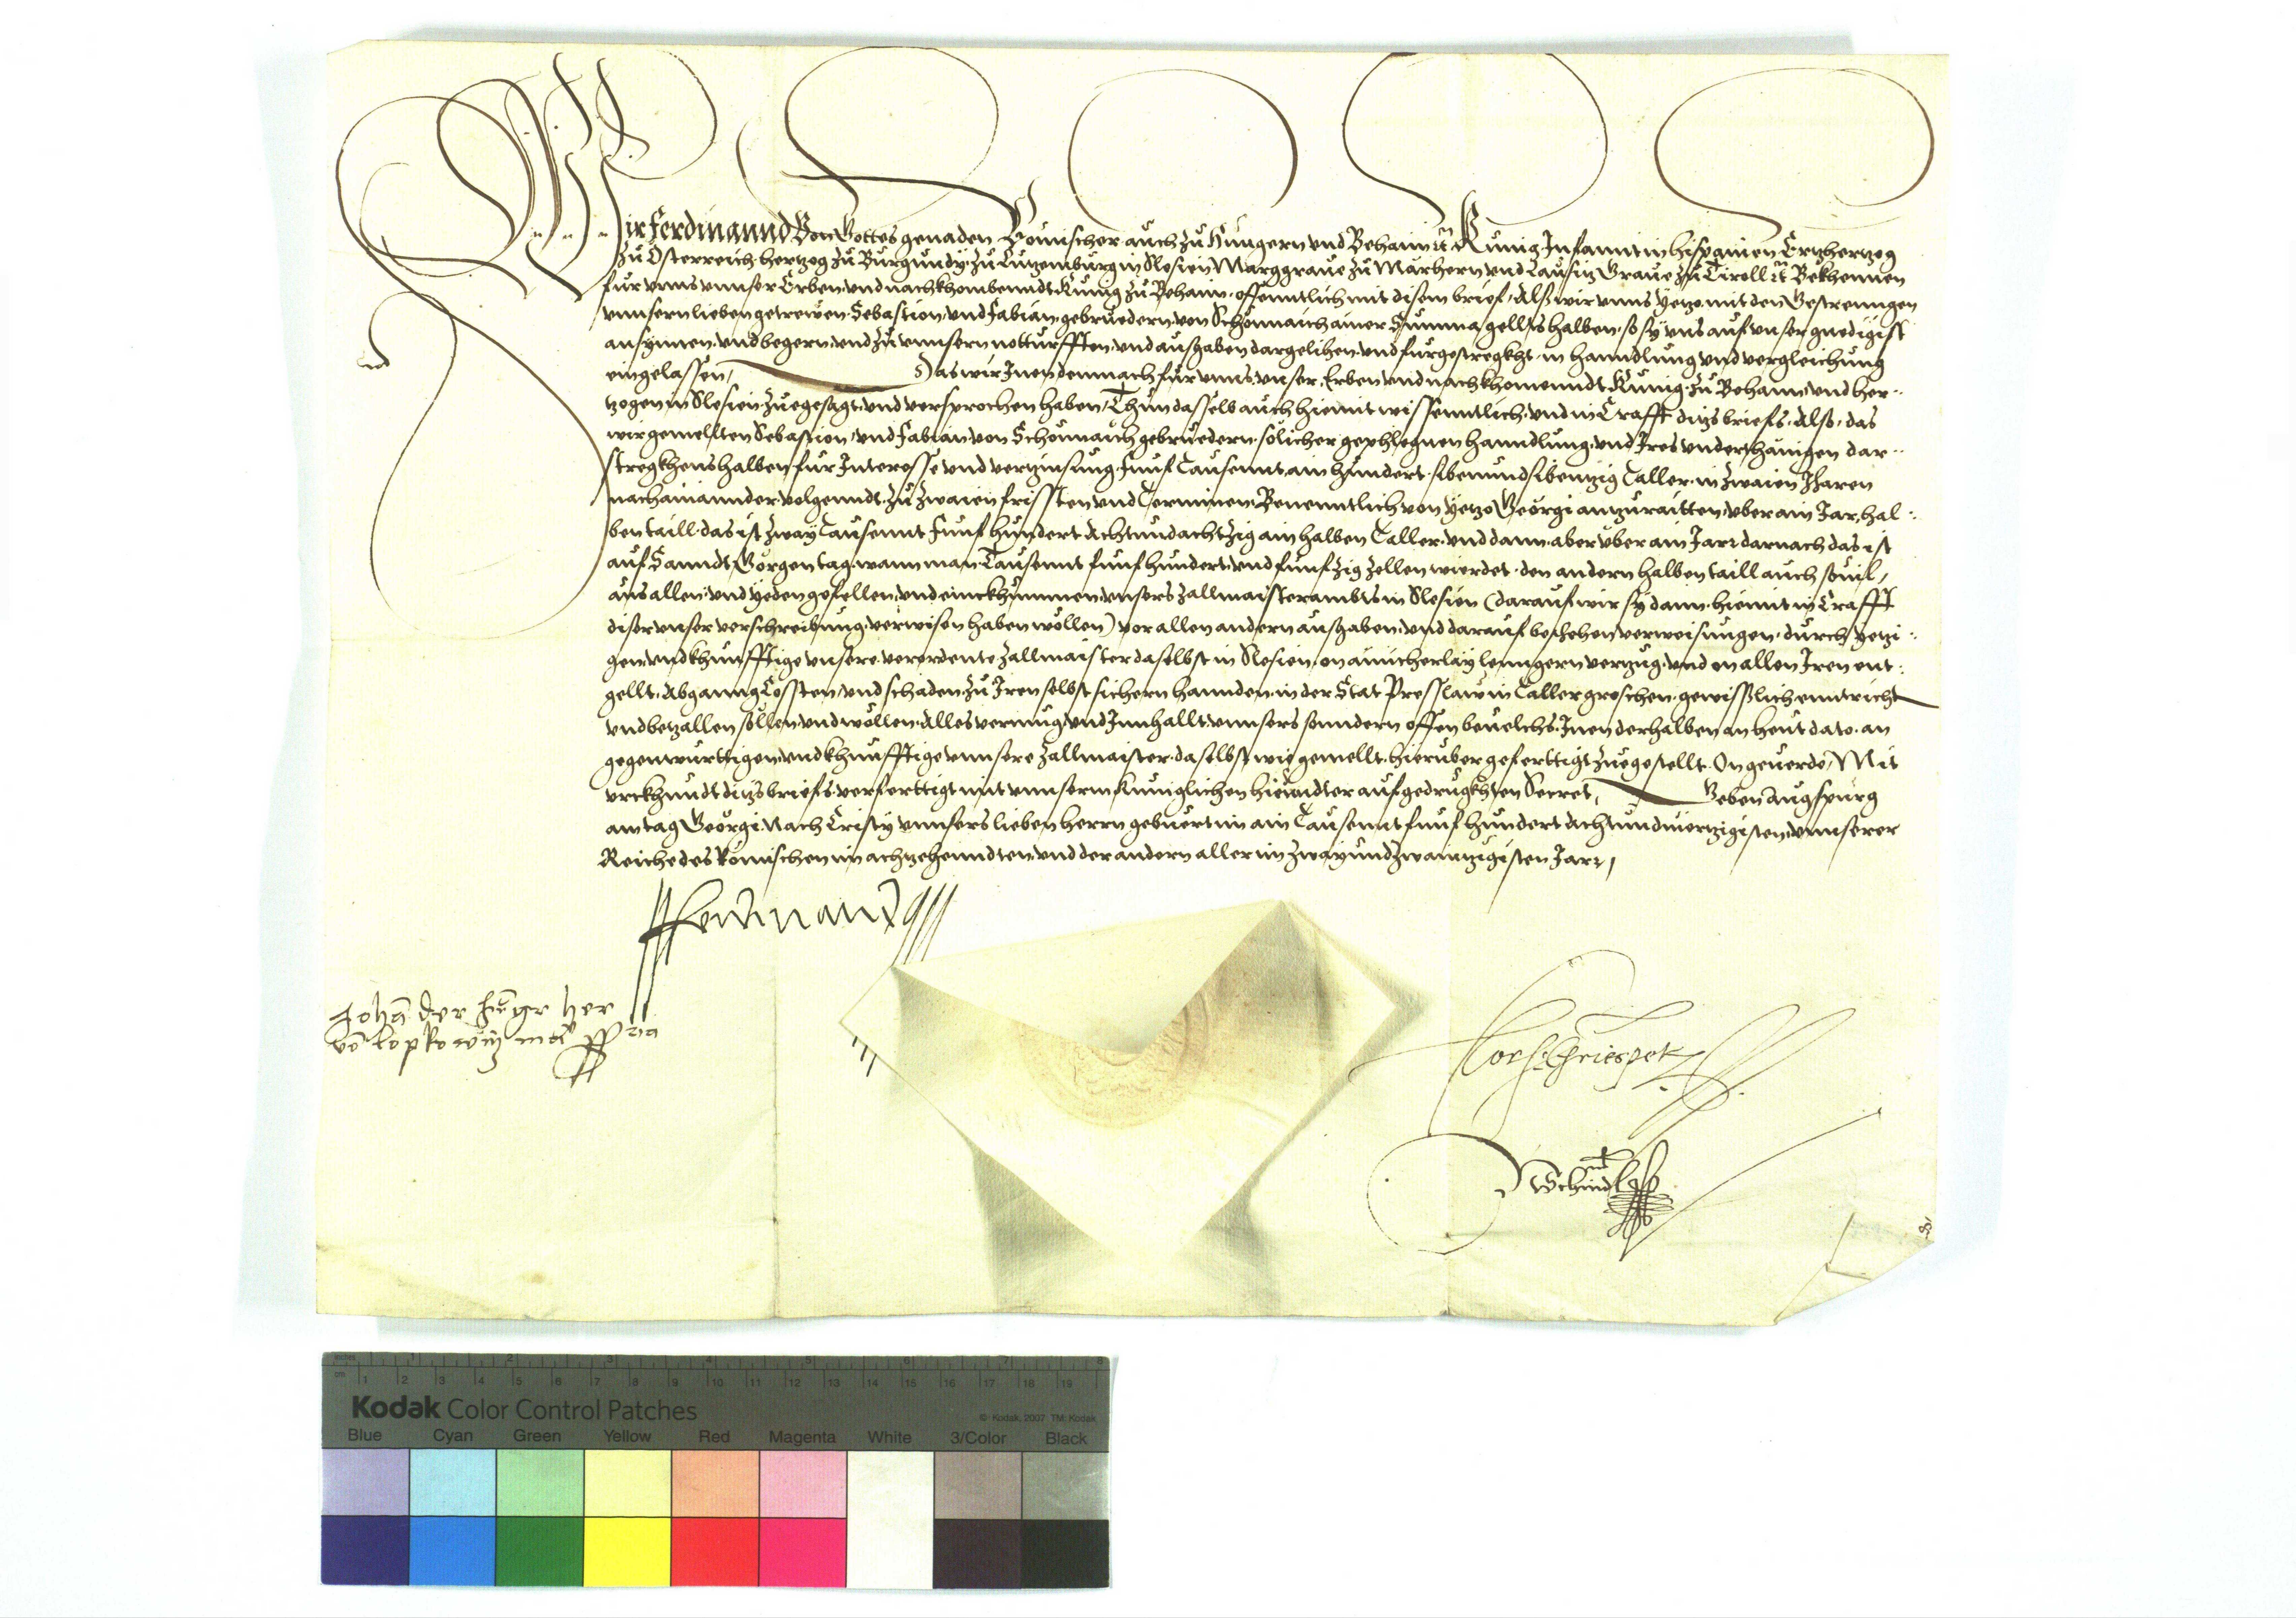 Wir Ferdinannd Von Gottes genaden Römischer auch zu Hungern und Behaim etc. Künig Infannt in hispanien Ertzhertzog
zu Österreich hertzog zu Burgundy zu Lutzemburg in Slesien Marggraue zu Märhern und Lausitz Graue zu Tiroll etc. Bekhennen
für unns unnser Erben und nachkhombenndt Künig zu Behaim offenntlich mit disem brief, Alß wir unns yetzo mit den Gestrenngen
unnsern lieben getrewen Sebastion und Fabian gebruedern von Schönnaich ainer Summa gellts halben, so sy uns auf unser gnedigist
ansynnen und begern und zu unnsern notturfften und außgaben dargelihen und fürgestregkht in hanndlung und vergleichung
eingelassen, Das wir Inen demnach für unns, unser Erben und nachkhomenndt Künig zu Behaim und her-
tzogen in Slesien zuegesagt und versprochen haben, Thun dasselb auch hiemit wissenntlich und in Crafft ditzs briefs, Alß, das
wir gemellten Sebastion und Fabian von Schönnaich gebruedern sölicher gephlegnen hanndlung und Ires underthänigen dar-
stregkhens halben für Interesse und vertzinsung, fünf Tausennt ain hundert sibenundsibentzig Taller in zwaien Jharen
nachainannder volgenndt zu zwaien frissten und Terminen Benenntlich von yetzo Geörgi antzuraitten uber ain Jar, hal-
ben taill das ist zway Tausennt Fünf hundert Achtundachtzig ain halben Taller und dann aber uber ain Jarr darnach das ist
auf Sanndt Görgen tag wann man Tausennt fünf hundert und fünfzig zellen wierdet den andern halben taill auch souil,
aus allen und yeden gefellen und einckhummen unsers zallmaisterambts in Slesien (darauf wir sy dann hiemit in Crafft
diser unser verschreibung verwisen haben wöllen) vor allen andern außgaben und darauf beschehen verweisungen durch yetzi-
gen und khünfftige unsere verordente zallmaister daselbst in Slesien on ainicherlay lenngern vertzug und on allen Iren ent-
gellt, Abganng Cossten und schaden zu Iren selbst sichern hannden in der Stat Presslaw in Taller groschen gewißlich enntricht
und betzallen sollen und wöllen Alles vermüg und Innhallt unnsers sonndern offen beuelchs Inen derhalben an heut dato an
gegenwürttigen und khünfftige unnsere zallmaister daselbst wie gemellt hierüber geferttigt zuegestellt Ongeuerde, Mit
urckhundt ditzs briefs verferttigt mit unnserm Küniglichen hierundter aufgedrugkhten Secret, Geben Augspurg
am tag Geörgi Nach Cristy unnsers lieben herrn geburt im ain Tausennt fünf hundert Achtundviertzigisten unnserer
Reiche des Römischen im achtzehenndten und der andern aller im zwayundzwaintzigisten Jarr,
Ferdinand
Johā der jūger her
vō Lopkowitz mā pp ria
Flor: Griespek
W Schindl
Kodak Color Control Patches
© Kodak, 2007 TM: Kodak
Blue Cyan Green Yellow Red Magenta White 3/Color Black